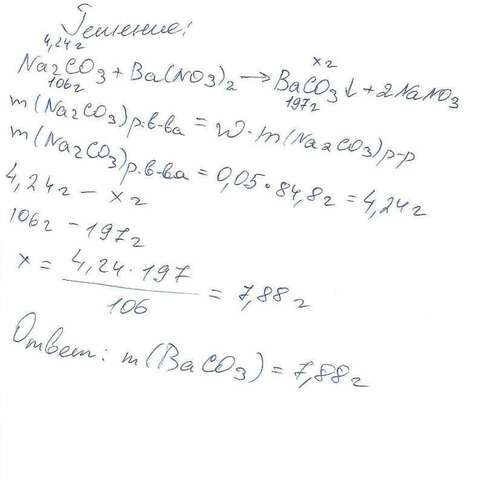 Решение:
4,24г x г
Na2CO3 + Ba(NO3)2 → BaCO3↓ + 2NaNO3
106г 197г
m(Na2CO3)р.в-ва = W·m(Na2CO3)р-р
m(Na2CO3)р.в-ва = 0,05·84,8г = 4,24г
4,24г – x г
106г – 197г
x = 4,24·197 / 106 = 7,88г
Ответ: m(BaCO3) = 7,88г